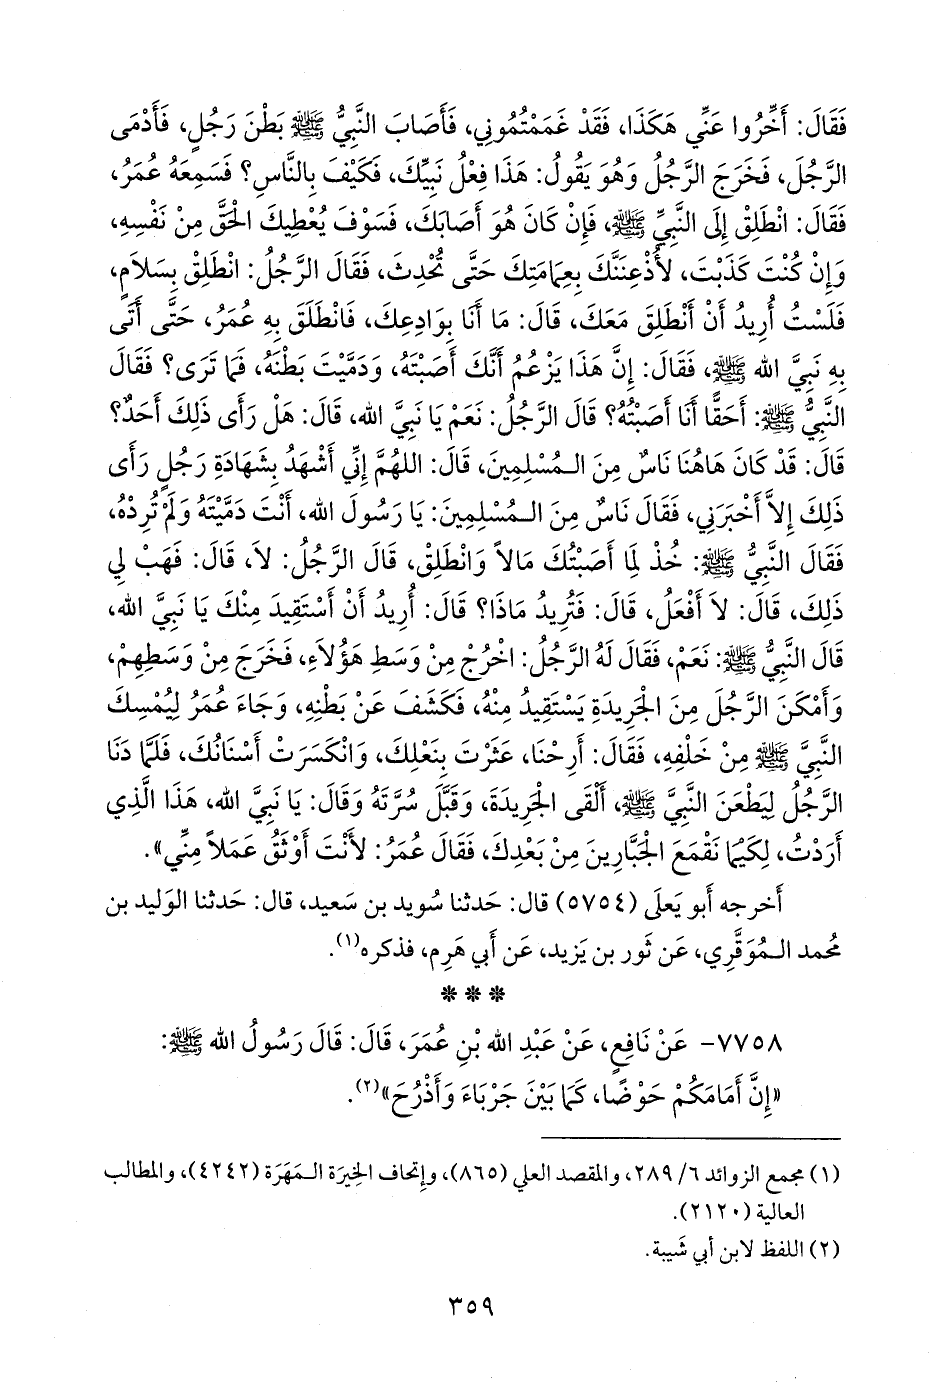 فَقَالَ: أَخِّرُوا عَنِّي هَكَذَا، فَقَدْ غَمَمْتُمُونِي، فَأَصَابَ النَّبِيُّ ﷺ بَطْنَ رَجُلٍ، فَأَدْمَى
الرَّجُلَ، فَخَرَجَ الرَّجُلُ وَهُوَ يَقُولُ: هَذَا فِعْلُ نَبِيِّكَ، فَكَيْفَ بِالنَّاسِ؟ فَسَمِعَهُ عُمَرُ،
فَقَالَ: انْطَلِقْ إِلَى النَّبِيِّ ﷺ، فَإِنْ كَانَ هُوَ أَصَابَكَ، فَسَوْفَ يُعْطِيكَ الْحَقَّ مِنْ نَفْسِهِ،
وَإِنْ كُنْتَ كَذَبْتَ، لأُذْعِنَنَّكَ بِعِمَامَتِكَ حَتَّى تُحْدِثَ، فَقَالَ الرَّجُلُ: انْطَلِقْ بِسَلاَمٍ،
فَلَسْتُ أُرِيدُ أَنْ أَنْطَلِقَ مَعَكَ، قَالَ: مَا أَنَا بِوَادِعِكَ، فَانْطَلَقَ بِهِ عُمَرُ، حَتَّى أَتَى
بِهِ نَبِيَّ الله ﷺ، فَقَالَ: إِنَّ هَذَا يَزْعُمُ أَنَّكَ أَصَبْتَهُ، وَدَمَّيْتَ بَطْنَهُ، فَمَا تَرَى؟ فَقَالَ
النَّبِيُّ ﷺ: أَحَقًّا أَنَا أَصَبْتُهُ؟ قَالَ الرَّجُلُ: نَعَمْ يَا نَبِيَّ الله، قَالَ: هَلْ رَأَى ذَلِكَ أَحَدٌ؟
قَالَ: قَدْ كَانَ هَاهُنَا نَاسٌ مِنَ الـمُسْلِمِينَ، قَالَ: اللهُمَّ إِنِّي أَشْهَدُ بِشَهَادَةِ رَجُلٍ رَأَى
ذَلِكَ إِلاَّ أَخْبَرَنِي، فَقَالَ نَاسٌ مِنَ الـمُسْلِمِينَ: يَا رَسُولَ الله، أَنْتَ دَمَّيْتَهُ وَلَمْ تُرِدْهُ،
فَقَالَ النَّبِيُّ ﷺ: خُذْ لِمَا أَصَبْتُكَ مَالاً وَانْطَلِقْ، قَالَ الرَّجُلُ: لاَ، قَالَ: فَهَبْ لِي
ذَلِكَ، قَالَ: لاَ أَفْعَلُ، قَالَ: فَتُرِيدُ مَاذَا؟ قَالَ: أُرِيدُ أَنْ أَسْتَقِيدَ مِنْكَ يَا نَبِيَّ الله،
قَالَ النَّبِيُّ ﷺ: نَعَمْ، فَقَالَ لَهُ الرَّجُلُ: اخْرُجْ مِنْ وَسَطِ هَؤُلاَءِ، فَخَرَجَ مِنْ وَسَطِهِمْ،
وَأَمْكَنَ الرَّجُلَ مِنَ الْجَرِيدَةِ يَسْتَقِيدُ مِنْهُ، فَكَشَفَ عَنْ بَطْنِهِ، وَجَاءَ عُمَرُ لِيُمْسِكَ
النَّبِيَّ ﷺ مِنْ خَلْفِهِ، فَقَالَ: أَرِحْنَا، عَثَرْتَ بِنَعْلِكَ، وَانْكَسَرَتْ أَسْنَانُكَ، فَلَمَّا دَنَا
الرَّجُلُ لِيَطْعَنَ النَّبِيَّ ﷺ، أَلْقَى الْجَرِيدَةَ، وَقَبَّلَ سُرَّتَهُ وَقَالَ: يَا نَبِيَّ الله، هَذَا الَّذِي
أَرَدْتُ، لِكَيْمَا نَقْمَعَ الْجَبَّارِينَ مِنْ بَعْدِكَ، فَقَالَ عُمَرُ: لأَنْتَ أَوْثَقُ عَمَلاً مِنِّي».
أَخرجه أَبو يَعلَى (٥٧٥٤) قال: حَدثنا سُويد بن سَعيد، قال: حَدثنا الوَليد بن
مُحمد الـمُوَقَّرِي، عَن ثَور بن يَزيد، عَن أَبي هَرِم، فذكره(١).
***
٧٧٥٨- عَنْ نَافِعٍ، عَنْ عَبْدِ الله بْنِ عُمَرَ، قَالَ: قَالَ رَسُولُ الله ﷺ:
«إِنَّ أَمَامَكُمْ حَوْضًا، كَمَا بَيْنَ جَرْبَاءَ وَأَذْرُحَ»(٢).
(١) مجمع الزوائد ٦/ ٢٨٩، والمقصد العلي (٨٦٥)، وإتحاف الخِيرَة الـمَهَرَة (٤٢٤٢)، والمطالب
العالية (٢١٢٠).
(٢) اللفظ لابن أبي شَيبة.
٣٥٩